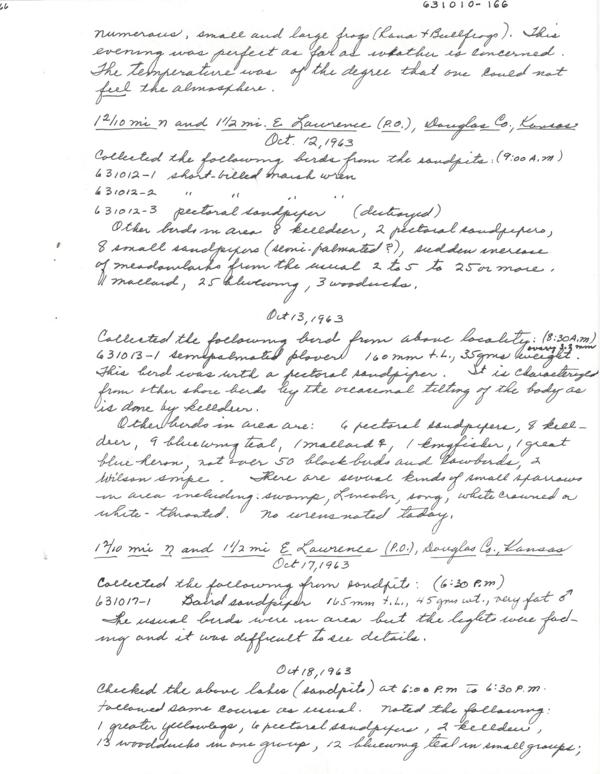 66
631010-166
numerous, small and large frogs (Rana + Bullfrogs). This
evening was perfect as far as whather is concerned.
The temperature was of the degree that one could not
feel the atmosphere.
1 2/10 mi N and 1 1/2 mi. E Lawrence (P.O.), Douglas Co., Kansas
Oct. 12, 1963
Collected the following birds from the sandpits: (9:00 A.M)
631012-1 short-billed marsh wren
631012-2 " " " "
631012-3 pectoral sandpiper (destroyed)
Other birds in area 8 killdeer, 2 pectoral sandpipers,
8 small sandpipers (semi-palmated ?), sudden increase
of meadowlarks from the usual 2 to 5 to 25 or more.
11 mallard, 25 bluewing, 3 woodducks.
Oct 13, 1963
Collected the following bird from above locality: (8:30 A.M)
631013-1 semipalmated plover 160 mm t.L., 35 gms weight. ovary 3.3 mm
This bird was with a pectoral sandpiper. It is characterized
from other shore birds by the occasional tilting of the body as
is done by killdeer.
Other birds in area are: 6 pectoral sandpipers, 8 kill-
deer, 9 bluewing teal, 1 mallard ♀, 1 kingfisher, 1 great
blue heron, not over 50 blackbirds and cowbirds, 2
Wilson snipe. There are several kinds of small sparrows
in area including: swamp, Lincoln, song, white crowned or
white-throated. No wrens noted today.
1 2/10 mi N and 1 1/2 mi E Lawrence (P.O.), Douglas Co., Kansas
Oct 17, 1963
Collected the following from sandpit: (6:30 P.m)
631017-1 Baird sandpiper 165 mm t.L., 45 gms wt., very fat ♂
The usual birds were in area but the lights were fad-
ing and it was difficult to see details.
Oct 18, 1963
Checked the above lakes (sandpits) at 6:00 P.m to 6:30 P.M.
Followed same course as usual. Noted the following:
1 greater yellowlegs, 6 pectoral sandpipers, 2 killdeer,
13 woodducks in one group, 12 bluewing teal in small groups;